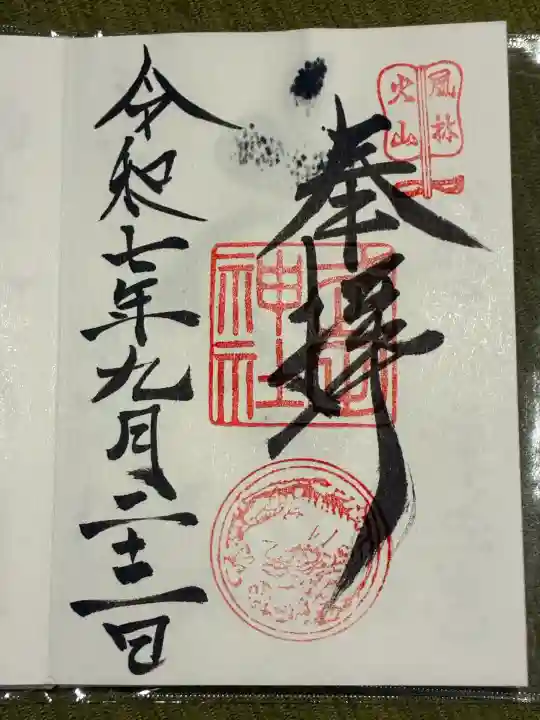 風林
火山
奉拝
神社
令和七年九月二十二日